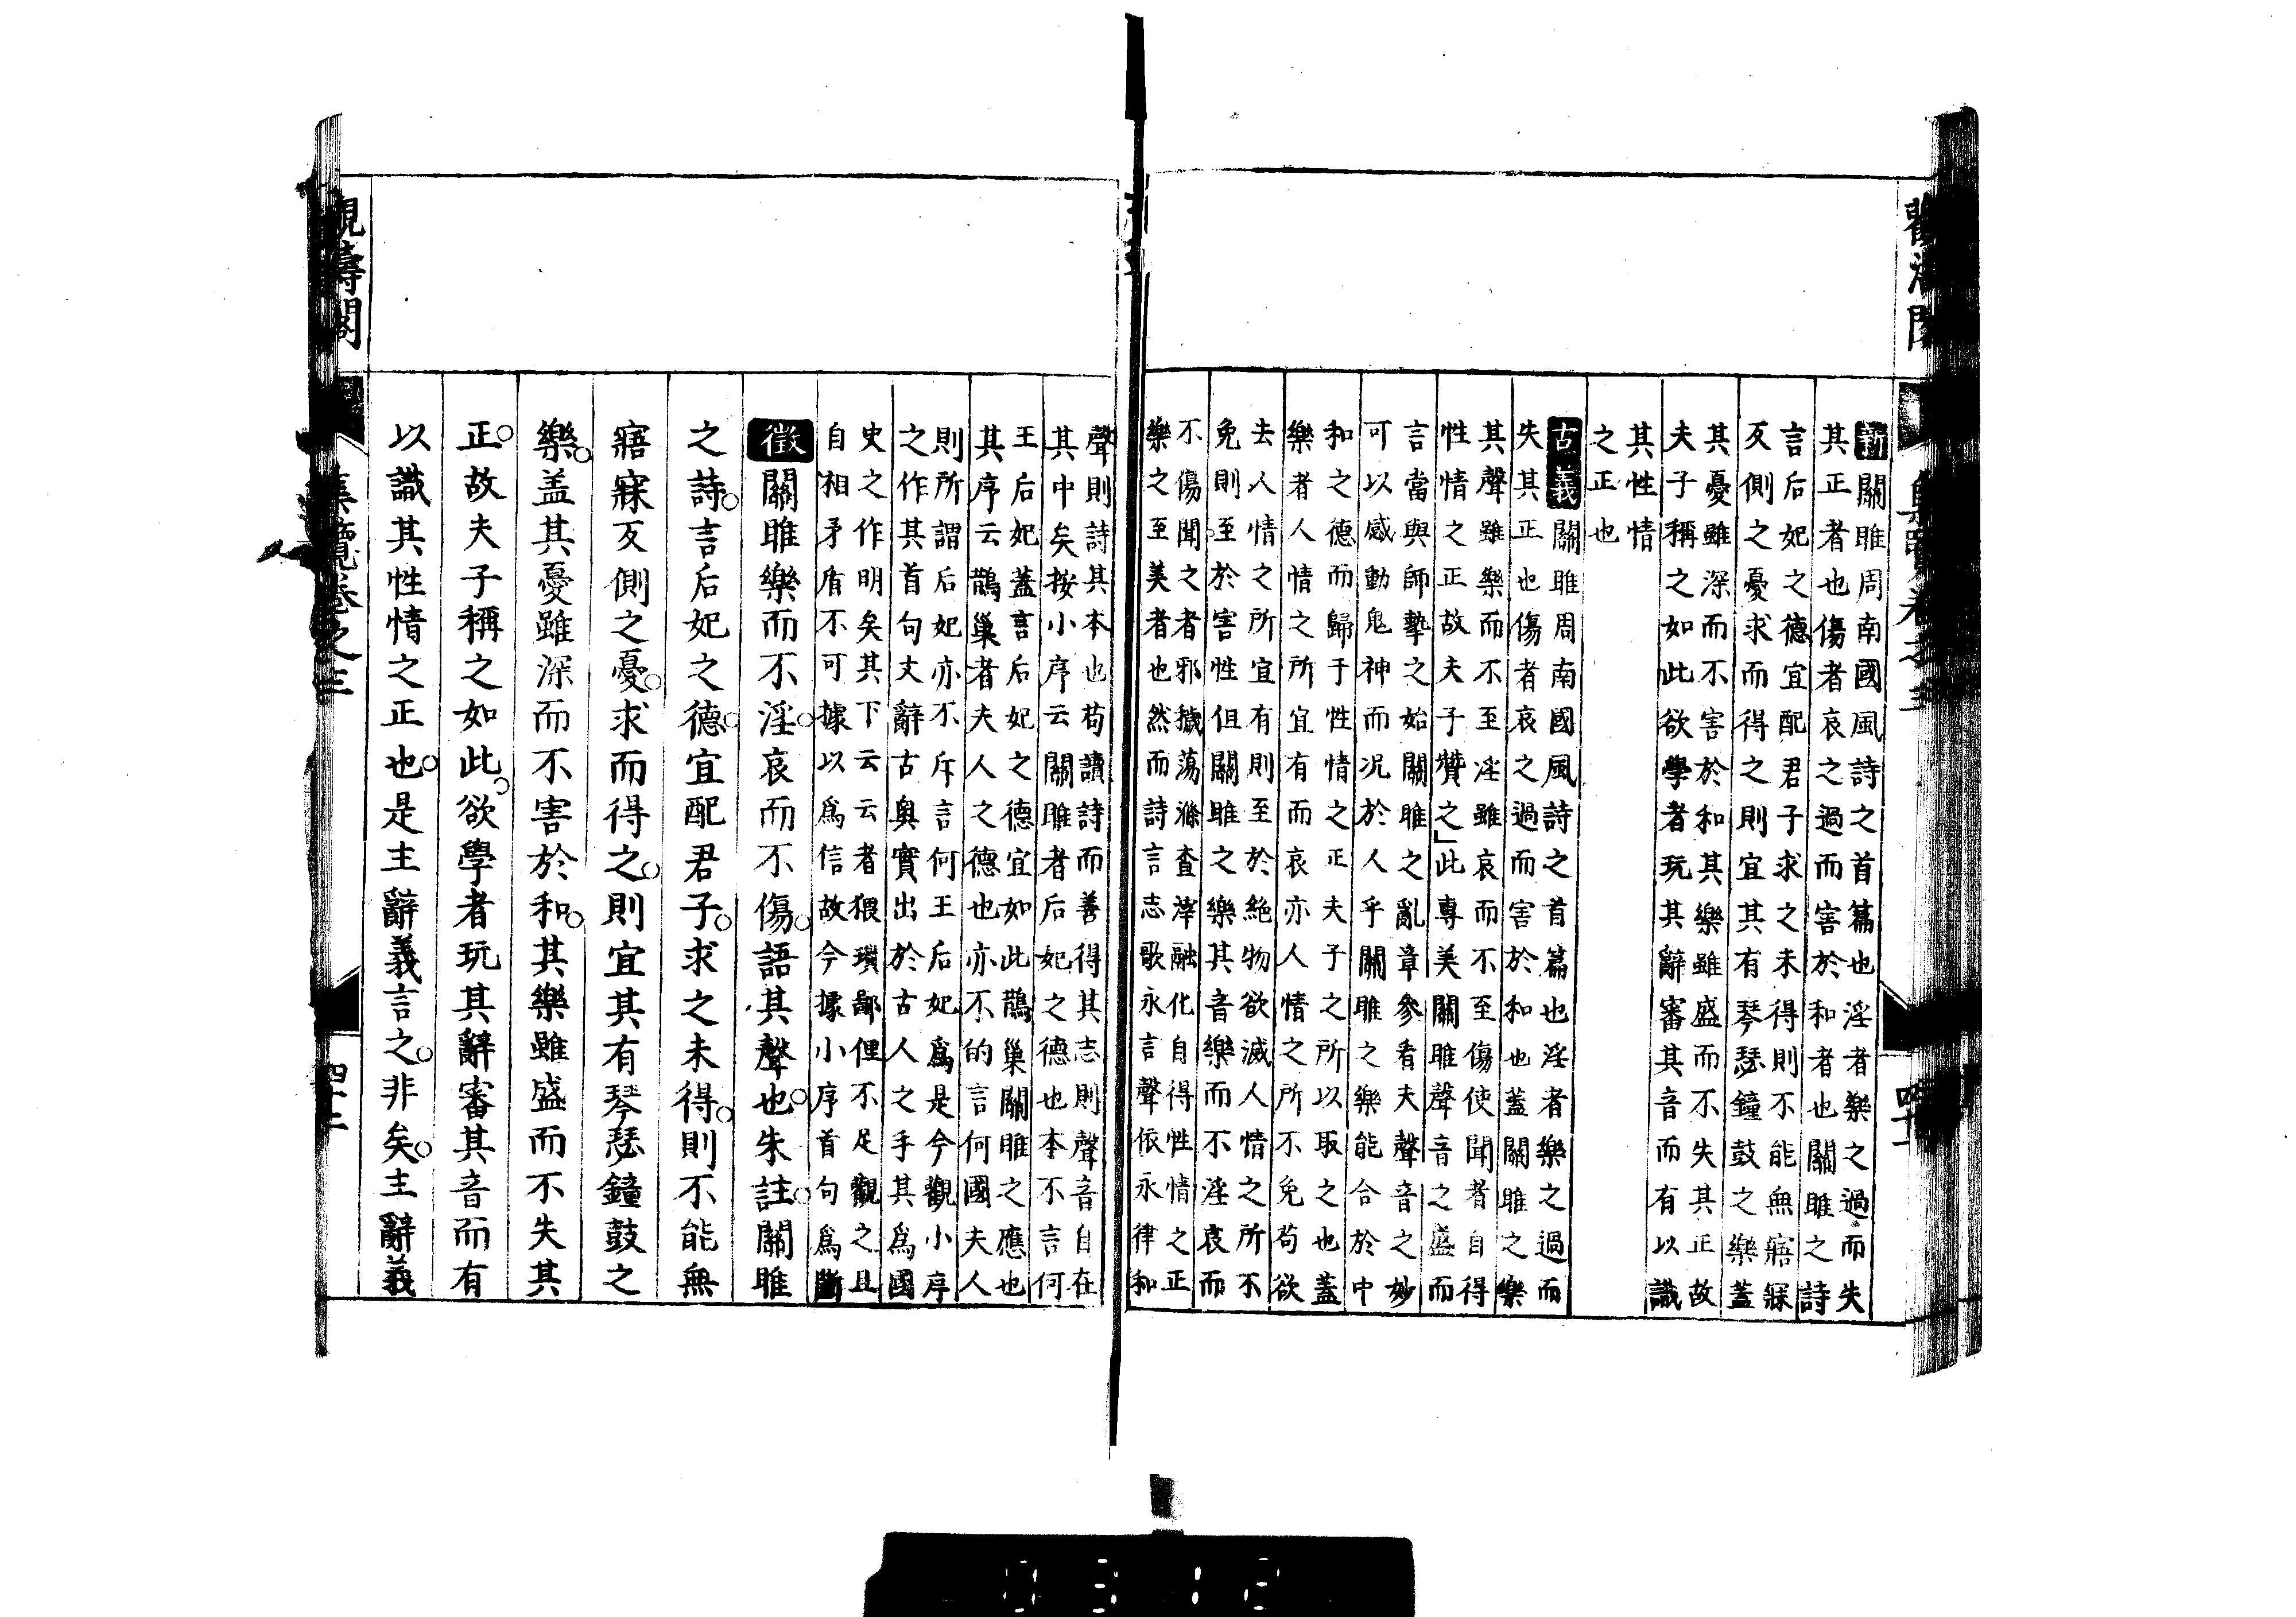 新關雎周南國風詩之首篇也淫者樂之過而失
其正者也傷者哀之過而害於和者也關雎之詩
言后妃之德宜配君子求之未得則不能無寤寐
反側之憂求而得之則宜其有琴瑟鐘鼓之樂蓋
其憂雖深而不害於和其樂雖盛而不失其正故
夫子稱之如此欲學者玩其辭審其音而有以識
其性情
之正也
古義關雎周南國風詩之首篇也淫者樂之過而
失其正也傷者哀之過而害於和也蓋關雎之樂
其聲雖樂而不至淫雖哀而不至傷使聞者自得
性情之正故夫子贊之」此專美關雎聲音之盛而
言當與師摯之始關雎之亂章參看夫聲音之妙
可以感動鬼神而况於人乎關雎之樂能合於中
和之德而歸于性情之正夫子之所以取之也蓋
樂者人情之所宜有而哀亦人情之所不免苟欲
去人情之所宜有則至於絶物欲滅人情之所不
免則至於害性但關雎之樂其音樂而不淫哀而
不傷聞之者邪穢蕩滌査滓融化自得性情之正
樂之至美者也然而詩言志歌永言聲依永律和
聲則詩其本也苟讀詩而善得其志則聲音自在
其中矣按小序云關雎者后妃之德也本不言何
王后妃蓋言后妃之德宜如此鵲巢關雎之應也
其序云鵲巢者夫人之德也亦不的言何國夫人
則所謂后妃亦不斥言何王后妃爲是今觀小序
之作其首句丈辭古奥實出於古人之手其爲國
史之作明矣其下云云者猥瑣鄙俚不足觀之且
自相矛盾不可據以爲信故今據小序首句爲斷
徵關雎樂而不淫哀而不傷語其聲也朱註關雎
之詩言后妃之德宜配君子求之未得則不能無
寤寐反側之憂求而得之則宜其有琴瑟鐘鼓之
樂盖其憂雖深而不害於和其樂雖盛而不失其
正故夫子稱之如此欲學者玩其辭審其音而有
以識其性情之正也是主辭義言之非矣主辭義
觀濤閣
集覽卷之三
四十二